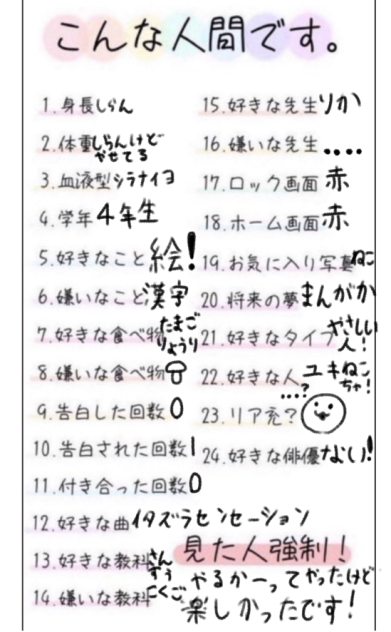 こんな人間です。
1.身長しらん
2.体重しらんけどやせてる
3.血液型シラナイヨ
4.学年4年生
5.好きなこと絵!
6.嫌いなこと漢字
7.好きな食べ物たまごりょうり
8.嫌いな食べ物
9.告白した回数0
10.告白された回数1
11.付き合った回数0
12.好きな曲イタズラセンセーション
13.好きな教科さんすう
14.嫌いな教科こくご
15.好きな先生りか
16.嫌いな先生....
17.ロック画面赤
18.ホーム画面赤
19.お気に入り写真ねこ
20.将来の夢まんがか
21.好きなタイプやさしい人!
22.好きな人...?ユキねこちゃ!
23.リア充?
24.好きな俳優ない!
見た人強制!
やるかーってやったけど
楽しかったです!